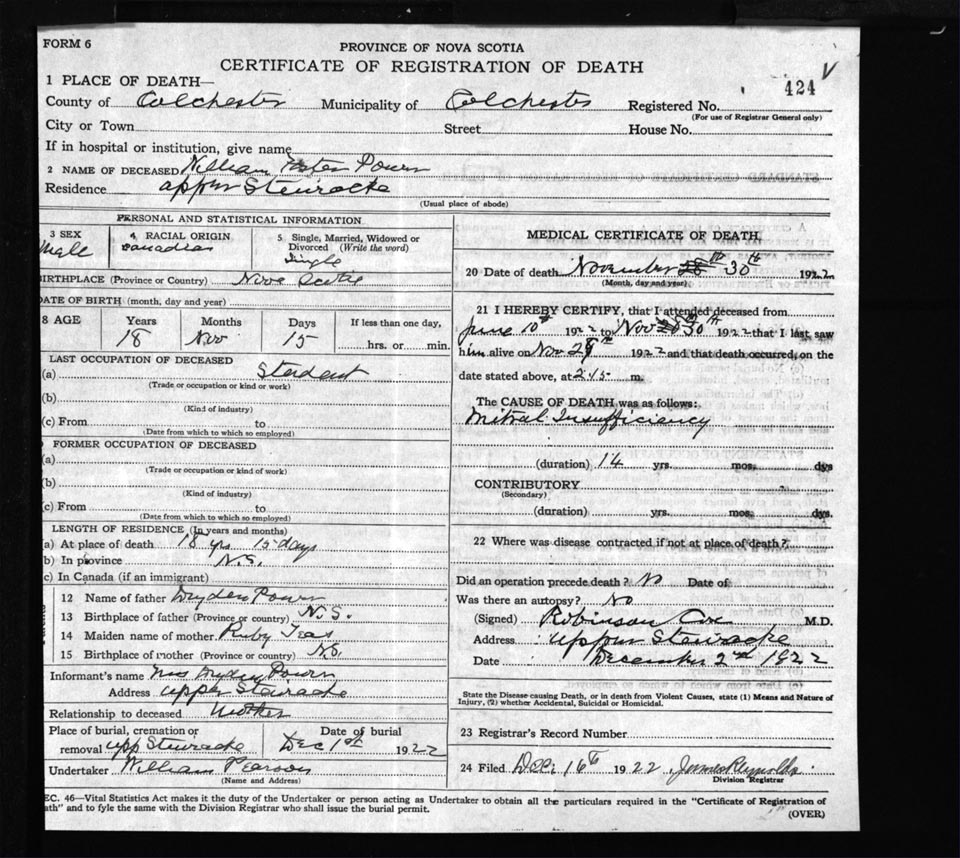 FORM 6
PROVINCE OF NOVA SCOTIA
CERTIFICATE OF REGISTRATION OF DEATH
424
1 PLACE OF DEATH—
County of Colchester Municipality of Colchester Registered No.
(For use of Registrar General only)
City or Town Street House No.
If in hospital or institution, give name
2 NAME OF DECEASED William
Residence Upper Stewiacke
(Usual place of abode)
PERSONAL AND STATISTICAL INFORMATION
3 SEX Male
4 RACIAL ORIGIN Canadian
5 Single, Married, Widowed or Divorced (Write the word) Single
BIRTHPLACE (Province or Country) Nova Scotia
DATE OF BIRTH (month, day and year)
8 AGE Years Months Days If less than one day,
18 Nov 15 hrs. or min.
LAST OCCUPATION OF DECEASED
(a) Student
(Trade or occupation or kind or work)
(b)
(Kind of industry)
(c) From to
(Date from which to which so employed)
FORMER OCCUPATION OF DECEASED
(a)
(Trade or occupation or kind of work)
(b)
(Kind of industry)
(c) From to
(Date from which to which so employed)
LENGTH OF RESIDENCE (In years and months)
(a) At place of death 18 yrs 15 days
b) In province N.S.
c) In Canada (if an immigrant)
12 Name of father Dryden
13 Birthplace of father (Province or country) N.S.
14 Maiden name of mother Ruby
15 Birthplace of mother (Province or country) N.S.
Informant's name Mrs Dryden
Address Upper Stewiacke
Relationship to deceased Mother
Place of burial, cremation or removal Upp Stewiacke
Date of burial Dec 1st 1922
Undertaker William Pearson
(Name and Address)
MEDICAL CERTIFICATE OF DEATH
20 Date of death November 30th 1922
(Month, day and year)
21 I HEREBY CERTIFY, that I attended deceased from
June 10th 1922 to Nov 30th 1922 that I last saw
him alive on Nov 29th 1922 and that death occurred, on the
date stated above, at 2.15 m.
The CAUSE OF DEATH was as follows:
Mitral Insufficiency
(duration) 14 yrs. mos. dys
CONTRIBUTORY
(Secondary)
(duration) yrs. mos. dys.
22 Where was disease contracted if not at place of death?
Did an operation precede death? No Date of
Was there an autopsy? No
(Signed) Robinson Cox M.D.
Address Upper Stewiacke
Date December 2nd 1922
State the Disease causing Death, or in death from Violent Causes, state (1) Means and Nature of
Injury, (2) whether Accidental, Suicidal or Homicidal.
23 Registrar's Record Number
24 Filed Dec. 16th 1922 James Reynolds
Division Registrar
EC. 46—Vital Statistics Act makes it the duty of the Undertaker or person acting as Undertaker to obtain all the particulars required in the "Certificate of Registration of
ath" and to fyle the same with the Division Registrar who shall issue the burial permit.
(OVER)